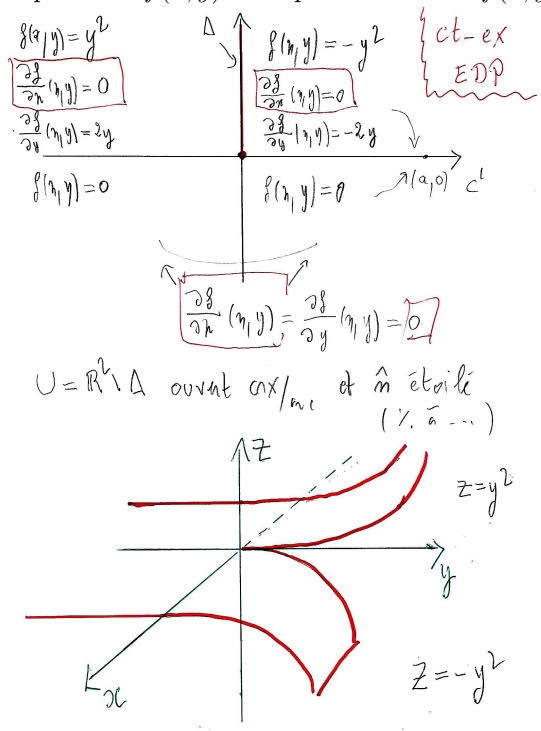 f(x,y)=y²
∂f/∂x (x,y)=0
∂f/∂y (x,y)=2y
f(x,y)=0
Δ
f(x,y)=-y²
∂f/∂x (x,y)=0
∂f/∂y (x,y)=-2y
f(x,y)=0
ct-ex
EDP
(a,0)
C¹
∂f/∂x (x,y) = ∂f/∂y (x,y) = 0
U = ℝ²\Δ ouvert cnx/arc et m̂ étoilé
(% à ...)
Z
z=y²
y
x
Z=-y²